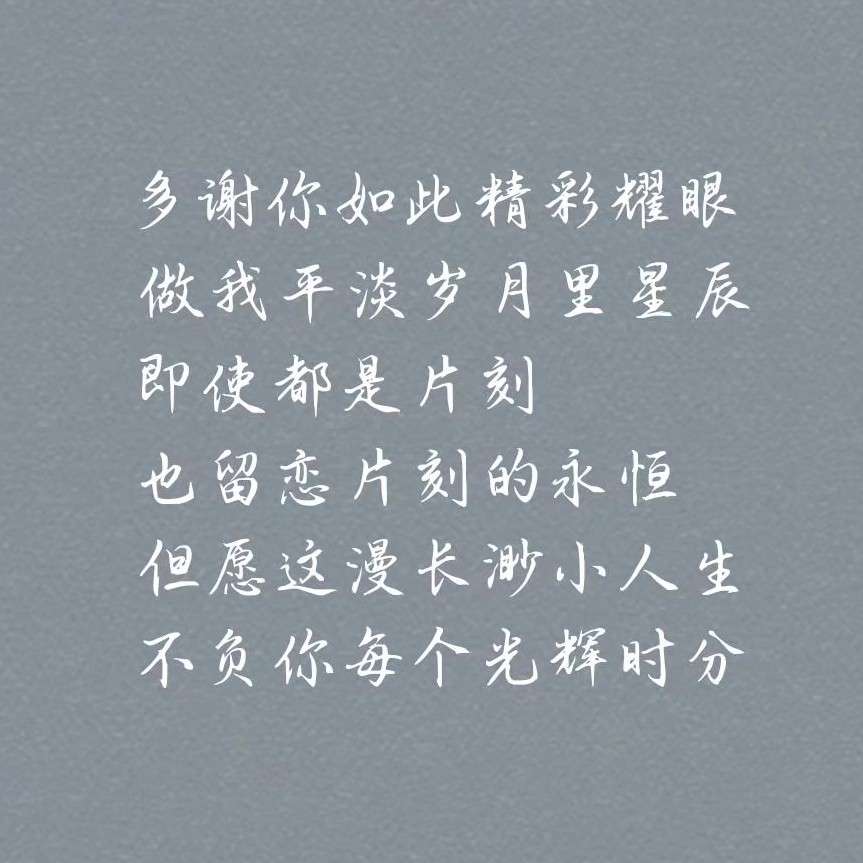 多谢你如此精彩耀眼
做我平淡岁月里星辰
即使都是片刻
也留恋片刻的永恒
但愿这漫长渺小人生
不负你每个光辉时分